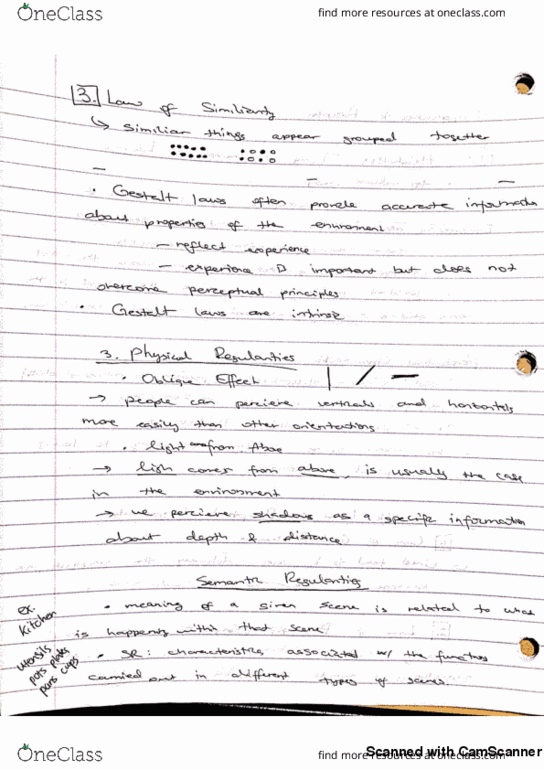 OneClass
find more resources at oneclass.com
3. Law of Similiarity
↳ Similiar things appear grouped together
• Gestalt laws often provide accurate information
about properties of the environment
– reflect experience
– experience is important but does not
overcome perceptual principles
• Gestalt laws are intrinsic
3. Physical Regularities
• Oblique Effect
→ people can percieve verticals and horizontals
more easily than other orientations
• light from Above
→ light comes from above, is usually the case
in the environment
→ we percieve shadows as a specific information
about depth & distance
Semantic Regularities
• meaning of a given scene is related to what
is happening within that scene
• SR: characteristics associated w/ the functions
carried out in different types of scenes.
ex.
Kitchen
utensils
pots plates
pans cups
OneClass
find more resources at oneclass.com
Scanned with CamScanner